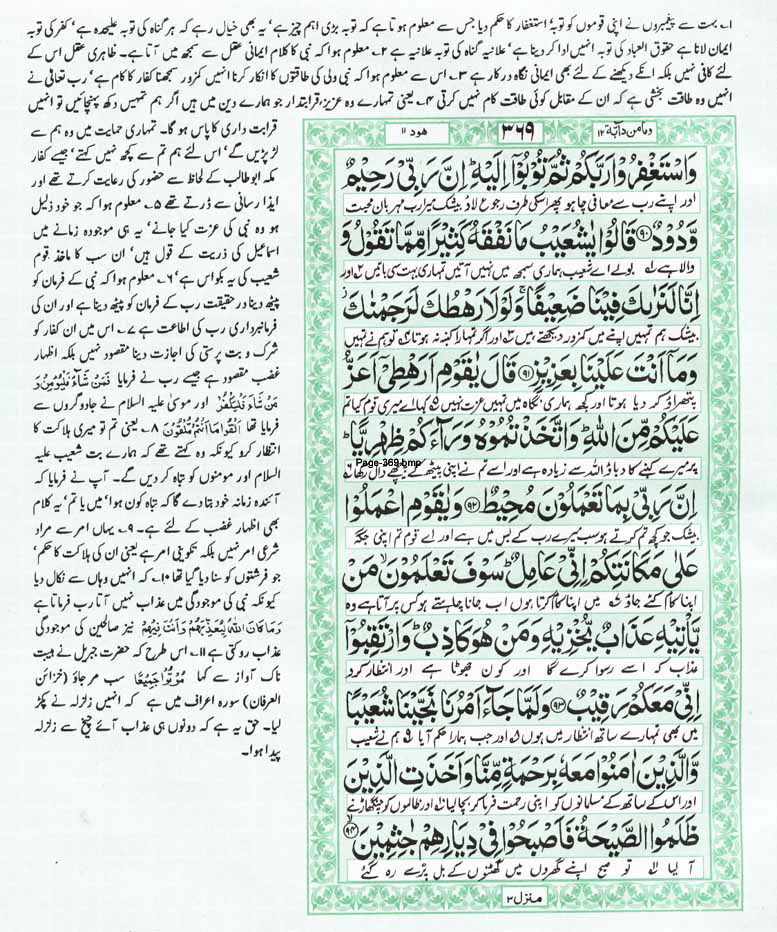 ۱۔ بہت سے پیغمبروں نے اپنی قوموں کو توبہ' استغفار کا حکم دیا جس سے معلوم ہوتا ہے کہ توبہ بڑی اہم چیز ہے' یہ بھی خیال رہے کہ ہر گناہ کی توبہ علیحدہ ہے' کفر کی توبہ
ایمان لانا ہے حقوق العباد کی توبہ انہیں ادا کر دینا ہے' علانیہ گناہ کی توبہ علانیہ ہے ۲۔ معلوم ہوا کہ نبی کا کلام ایمانی عقل سے سمجھ میں آتا ہے۔ ظاہری عقل اس کے
لئے کافی نہیں بلکہ انکے دیکھنے کے لئے بھی ایمانی نگاہ درکار ہے ۳۔ اس سے معلوم ہوا کہ نبی ولی کی طاقتوں کا انکار کرنا انہیں کمزور سمجھنا کفار کا کام ہے' رب تعالٰی نے
انہیں وہ طاقت بخشی ہے کہ ان کے مقابل کوئی طاقت کام نہیں کرتی ۴۔ یعنی تمہارے وہ عزیز و قرابتدار جو ہمارے دین میں ہیں اگر ہم تمہیں دکھ پہنچائیں تو انہیں
قرابت داری کا پاس ہو گا۔ تمہاری حمایت میں وہ ہم سے
لڑ پڑیں گے' اس لئے ہم تم سے کچھ نہیں کہتے' جیسے کفار
مکہ ابوطالب کے لحاظ سے حضور کی رعایت کرتے تھے اور
ایذا رسانی سے ڈرتے تھے ۵۔ معلوم ہوا کہ جو خود ذلیل
ہو وہ نبی کی عزت کیا جانے' یہ ہی موجودہ زمانے میں
اسماعیل کی ذریت کے قول ہیں' ان سب کا ماخذ قوم
شعیب کی یہ بکواس ہے' ۶۔ معلوم ہوا کہ نبی کے فرمان کو
پیٹھ دینا درحقیقت رب کے فرمان کو پیٹھ دینا ہے اور ان کی
فرمانبرداری رب کی اطاعت ہے ۷۔ اس میں ان کفار کو
شرک و بت پرستی کی اجازت دینا مقصود نہیں بلکہ اظہار
غضب مقصود ہے جیسے رب نے فرمایا فَمَنْ شَآءَ فَلْيُؤْمِنْ وَ
مَنْ شَآءَ فَلْيَكْفُرْ اور موسیٰ علیہ السلام نے جادوگروں سے
فرمایا تھا اَلْقُوْا مَا اَنْتُمْ مُلْقُوْنَ ۸۔ یعنی تم تو میری ہلاکت کا
انتظار کرو کیونکہ وہ کہتے تھے کہ ہمارے بت شعیب علیہ
السلام اور مومنوں کو تباہ کر دیں گے۔ آپ نے فرمایا کہ
آئندہ زمانہ خود بتا دے گا کہ تباہ کون ہوا' میں یا تم' یہ کلام
بھی اظہار غضب کے لئے ہے۔ ۹۔ یہاں امر سے مراد
شرعی امر نہیں بلکہ تکوینی امر ہے یعنی ان کی ہلاکت کا حکم'
جو فرشتوں کو سنا دیا گیا تھا ۱۰۔ کہ انہیں وہاں سے نکال دیا
کیونکہ نبی کی موجودگی میں عذاب نہیں آتا رب فرماتا ہے
وَمَا كَانَ اللهُ لِيُعَذِّبَهُمْ وَاَنْتَ فِيْهِمْ نیز صالحین کی موجودگی
عذاب روکتی ہے ۱۱۔ اس طرح کہ حضرت جبریل نے ہیبت
ناک آواز سے کہا مُوْتُوْا جَمِيْعًا سب مر جاؤ (خزائن
العرفان) سورہ اعراف میں ہے کہ انہیں زلزلہ نے پکڑ
لیا۔ حق یہ ہے کہ دونوں ہی عذاب آئے چیخ سے زلزلہ
پیدا ہوا۔
ومامن دآبۃ ۱۲ ۳۶۹ ھود ۱۱
وَاسْتَغْفِرُوْا رَبَّكُمْ ثُمَّ تُوْبُوْۤا اِلَیْهِؕ اِنَّ رَبِّیْ رَحِیْمٌ
اور اپنے رب سے معافی چاہو پھر اسکی طرف رجوع لاؤ بیشک میرا رب مہربان محبت
وَّدُوْدٌ۝۹۰ قَالُوْا یٰشُعَیْبُ مَا نَفْقَهُ كَثِیْرًا مِّمَّا تَقُوْلُ وَ
والا ہے ۱ بولے اے شعیب ہماری سمجھ میں نہیں آتیں تمہاری بہت سی باتیں ۲ اور
اِنَّا لَنَرٰىكَ فِیْنَا ضَعِیْفًاۚ وَ لَوْ لَا رَهْطُكَ لَرَجَمْنٰكَ٘
بیشک ہم تمہیں اپنے میں کمزور دیکھتے ہیں ۳ اور اگر تمہارا کنبہ نہ ہوتا ۴ تو ہم نے تمہیں
وَ مَاۤ اَنْتَ عَلَیْنَا بِعَزِیْزٍ۝۹۱ قَالَ یٰقَوْمِ اَرَهْطِیْۤ اَعَزُّ
پتھراؤ کر دیا ہوتا اور کچھ ہماری نگاہ میں تمہیں عزت نہیں ۵ کہا اے میری قوم کیا تم
عَلَیْكُمْ مِّنَ اللّٰهِؕ وَ اتَّخَذْتُمُوْهُ وَرَآءَكُمْ ظِهْرِیًّاؕ
پر میرے کنبے کا دباؤ اللہ سے زیادہ ہے اور اسے تم نے اپنی پیٹھ کے پیچھے ڈال رکھا ۶
Page-369.bmp
اِنَّ رَبِّیْ بِمَا تَعْمَلُوْنَ مُحِیْطٌ۝۹۲ وَ یٰقَوْمِ اعْمَلُوْا
بیشک جو کچھ تم کرتے ہو سب میرے رب کے بس میں ہے اور اے قوم تم اپنی جگہ
عَلٰى مَكَانَتِكُمْ اِنِّیْ عَامِلٌؕ سَوْفَ تَعْلَمُوْنَۙ مَنْ
اپنا کام کئے جاؤ ۷ میں اپنا کام کرتا ہوں اب جانا چاہتے ہو کس پر آتا ہے وہ
یَّاْتِیْهِ عَذَابٌ یُّخْزِیْهِ وَ مَنْ هُوَ كَاذِبٌؕ وَ ارْتَقِبُوْۤا
عذاب کہ اسے رسوا کرے گا اور کون جھوٹا ہے اور انتظار کرو
اِنِّیْ مَعَكُمْ رَقِیْبٌ۝۹۳ وَ لَمَّا جَآءَ اَمْرُنَا نَجَّیْنَا شُعَیْبًا
میں بھی تمہارے ساتھ انتظار میں ہوں ۸ اور جب ہمارا حکم آیا ۹ ہم نے شعیب
وَّ الَّذِیْنَ اٰمَنُوْا مَعَهٗ بِرَحْمَةٍ مِّنَّا وَ اَخَذَتِ الَّذِیْنَ
اور اس کے ساتھ کے مسلمانوں کو اپنی رحمت فرما کر بچا لیا ۱۰ اور ظالموں کو چنگھاڑ نے
ظَلَمُوا الصَّیْحَةُ فَاَصْبَحُوْا فِیْ دِیَارِهِمْ جٰثِمِیْنَۙ۝۹۴
آ لیا ۱۱ تو صبح اپنے گھروں میں گھٹنوں کے بل پڑے رہ گئے
منزل ۳